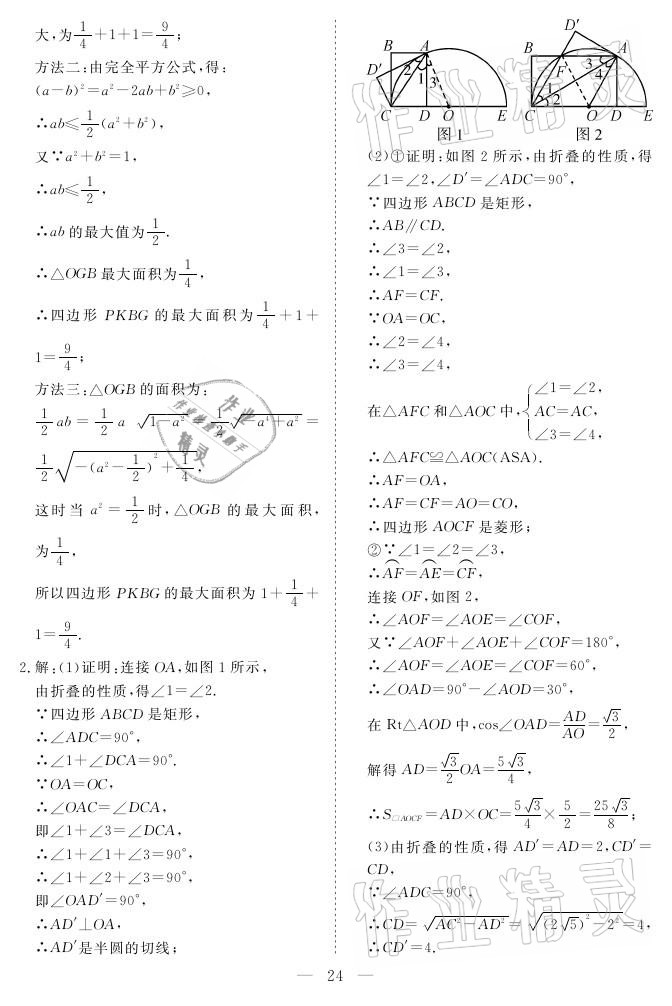 大,为1/4+1+1=9/4;
方法二:由完全平方公式,得:
(a-b)²=a²-2ab+b²≥0,
∴ab≤1/2(a²+b²),
又∵a²+b²=1,
∴ab≤1/2,
∴ab的最大值为1/2.
∴△OGB最大面积为1/4,
∴四边形 PKBG 的最大面积为1/4+1+
1=9/4;
方法三:△OGB的面积为:
1/2 ab = 1/2 a √(1-a²) = 1/2 √(-a⁴+a²) =
1/2 √(-(a²-1/2)²+1/4),
这时当 a²=1/2时,△OGB 的最大面积,
为1/4,
所以四边形 PKBG 的最大面积为 1+1/4+
1=9/4.
2.解:(1)证明:连接OA,如图1所示,
由折叠的性质,得∠1=∠2.
∵四边形ABCD是矩形,
∴∠ADC=90°,
∴∠1+∠DCA=90°.
∵OA=OC,
∴∠OAC=∠DCA,
即∠1+∠3=∠DCA,
∴∠1+∠1+∠3=90°,
∴∠1+∠2+∠3=90°,
即∠OAD′=90°,
∴AD′⊥OA,
∴AD′是半圆的切线;
B A D′ 2 1 3 C D O E
图1
D′ B A F 3 4 1 2 C O D E
图2
(2)①证明:如图2所示,由折叠的性质,得
∠1=∠2,∠D′=∠ADC=90°,
∵四边形ABCD是矩形,
∴AB∥CD.
∴∠3=∠2,
∴∠1=∠3,
∴AF=CF.
∵OA=OC,
∴∠2=∠4,
∴∠3=∠4,
在△AFC和△AOC中,{∠1=∠2,
AC=AC,
∠3=∠4,
∴△AFC≌△AOC(ASA).
∴AF=OA,
∴AF=CF=AO=CO,
∴四边形AOCF是菱形;
②∵∠1=∠2=∠3,
∴⌒AF=⌒AE=⌒CF,
连接OF,如图2,
∴∠AOF=∠AOE=∠COF,
又∵∠AOF+∠AOE+∠COF=180°,
∴∠AOF=∠AOE=∠COF=60°,
∴∠OAD=90°-∠AOD=30°,
在Rt△AOD中,cos∠OAD=AD/AO=√3/2,
解得AD=√3/2 OA=5√3/4,
∴S□AOCF=AD×OC=5√3/4×5/2=25√3/8;
(3)由折叠的性质,得AD′=AD=2,CD′=
CD,
∵∠ADC=90°,
∴CD=√(AC²-AD²)=√((2√5)²-2²)=4,
∴CD′=4.
— 24 —
作业精灵